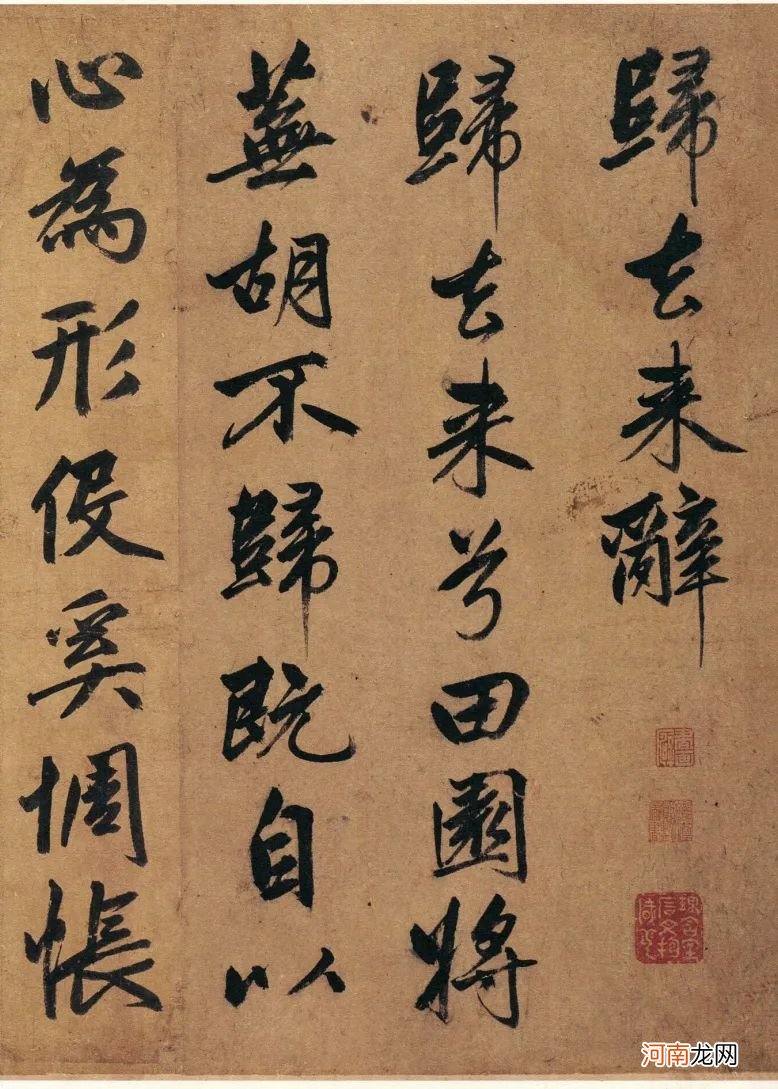 歸去来辭
歸去来兮田園將
蕪胡不歸既自以
心為形伇奚惆悵
河南龙网